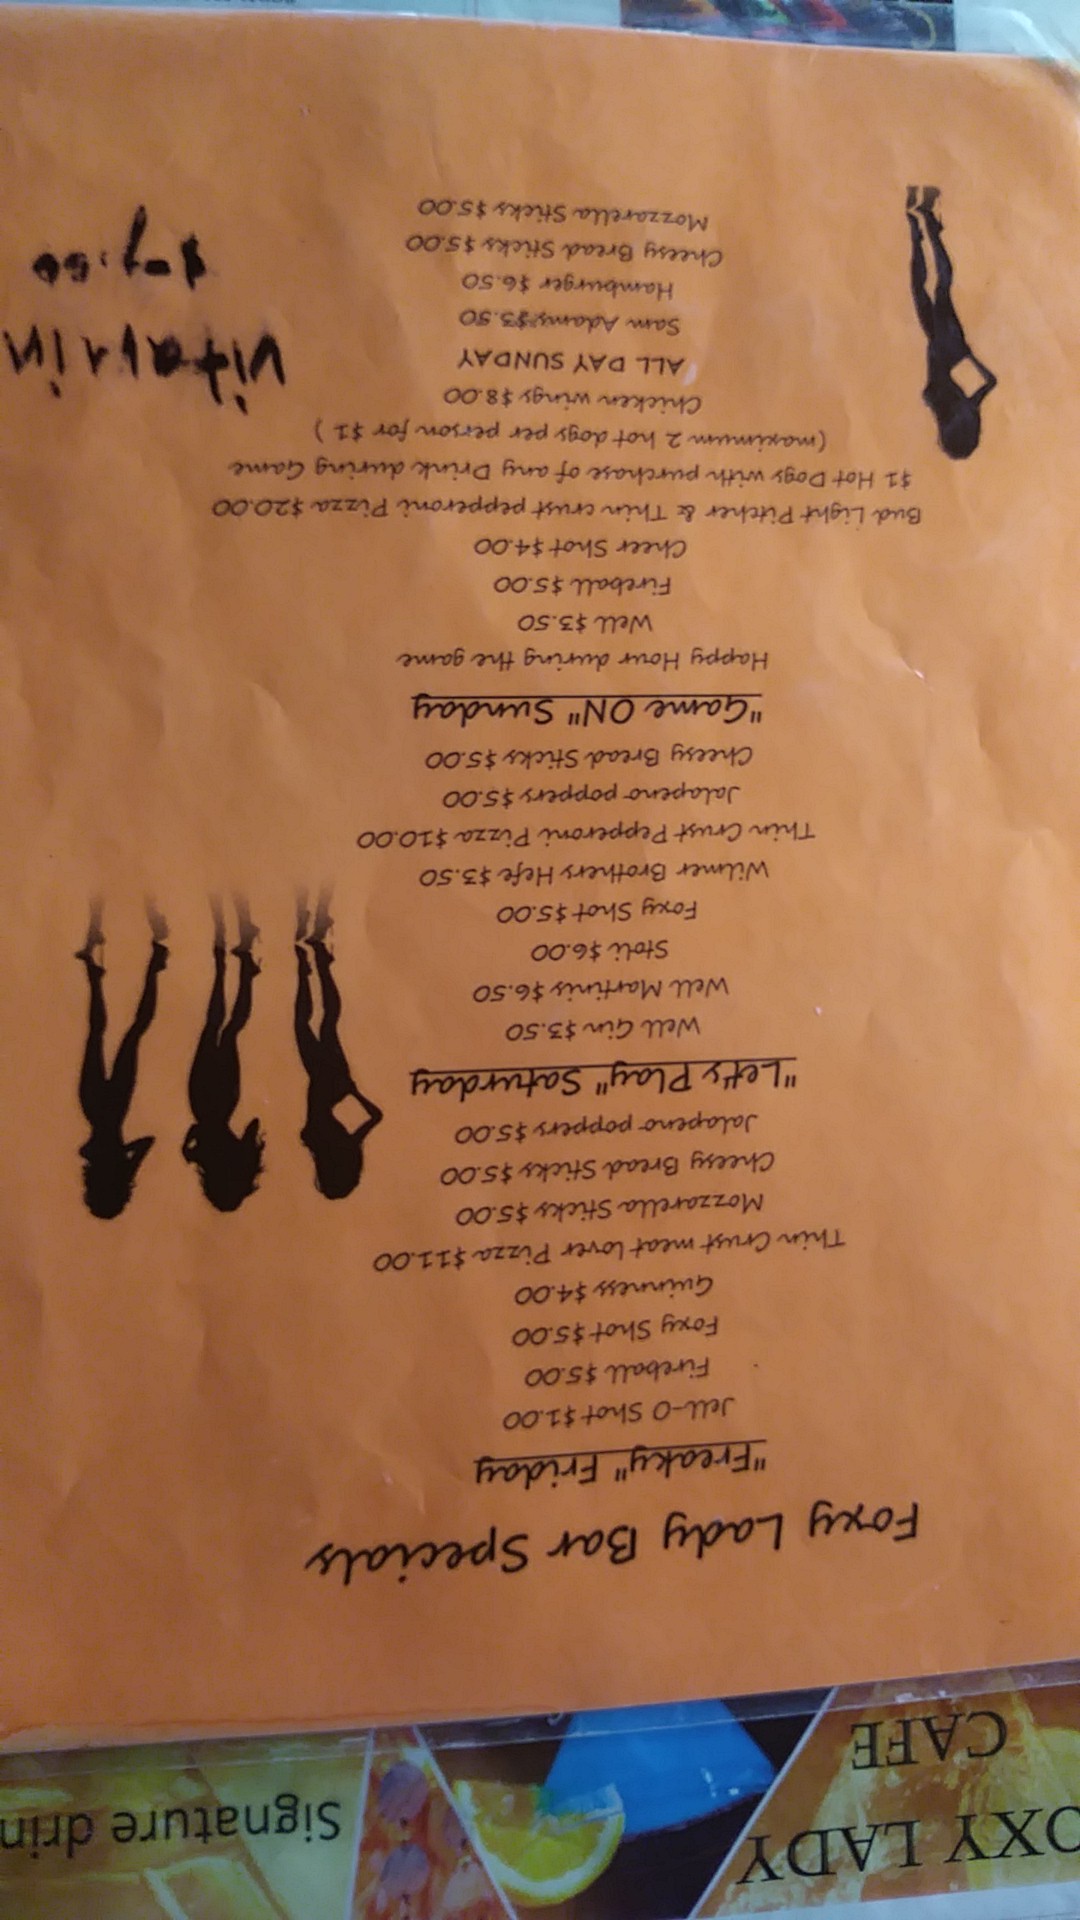 OXY LADY
CAFE
Signature drin
Foxy Lady Bar Specials
"Freaky" Friday
Jell-O Shot $1.00
Fireball $5.00
Foxy Shot $5.00
Guinness $4.00
Thin Crust meat lover Pizza $11.00
Mozzarella Sticks $5.00
Cheesy Bread Sticks $5.00
Jalapeno poppers $5.00
"Let's Play" Saturday
Well Gin $3.50
Well Martinis $6.50
Stoli $6.00
Foxy Shot $5.00
Wilmer Brothers Hefe $3.50
Thin Crust Pepperoni Pizza $10.00
Jalapeno poppers $5.00
Cheesy Bread Sticks $5.00
"Game ON" Sunday
Happy Hour during the game
Well $3.50
Fireball $5.00
Cheer Shot $4.00
Bud Light Pitcher & Thin crust pepperoni Pizza $20.00
$1 Hot Dogs with purchase of any Drink during Game
(maximum 2 hot dogs per person for $1 )
Chicken wings $8.00
ALL DAY SUNDAY
Sam Adams $3.50
Hamburger $6.50
Cheesy Bread Sticks $5.00
Mozzarella Sticks $5.00
$7.00